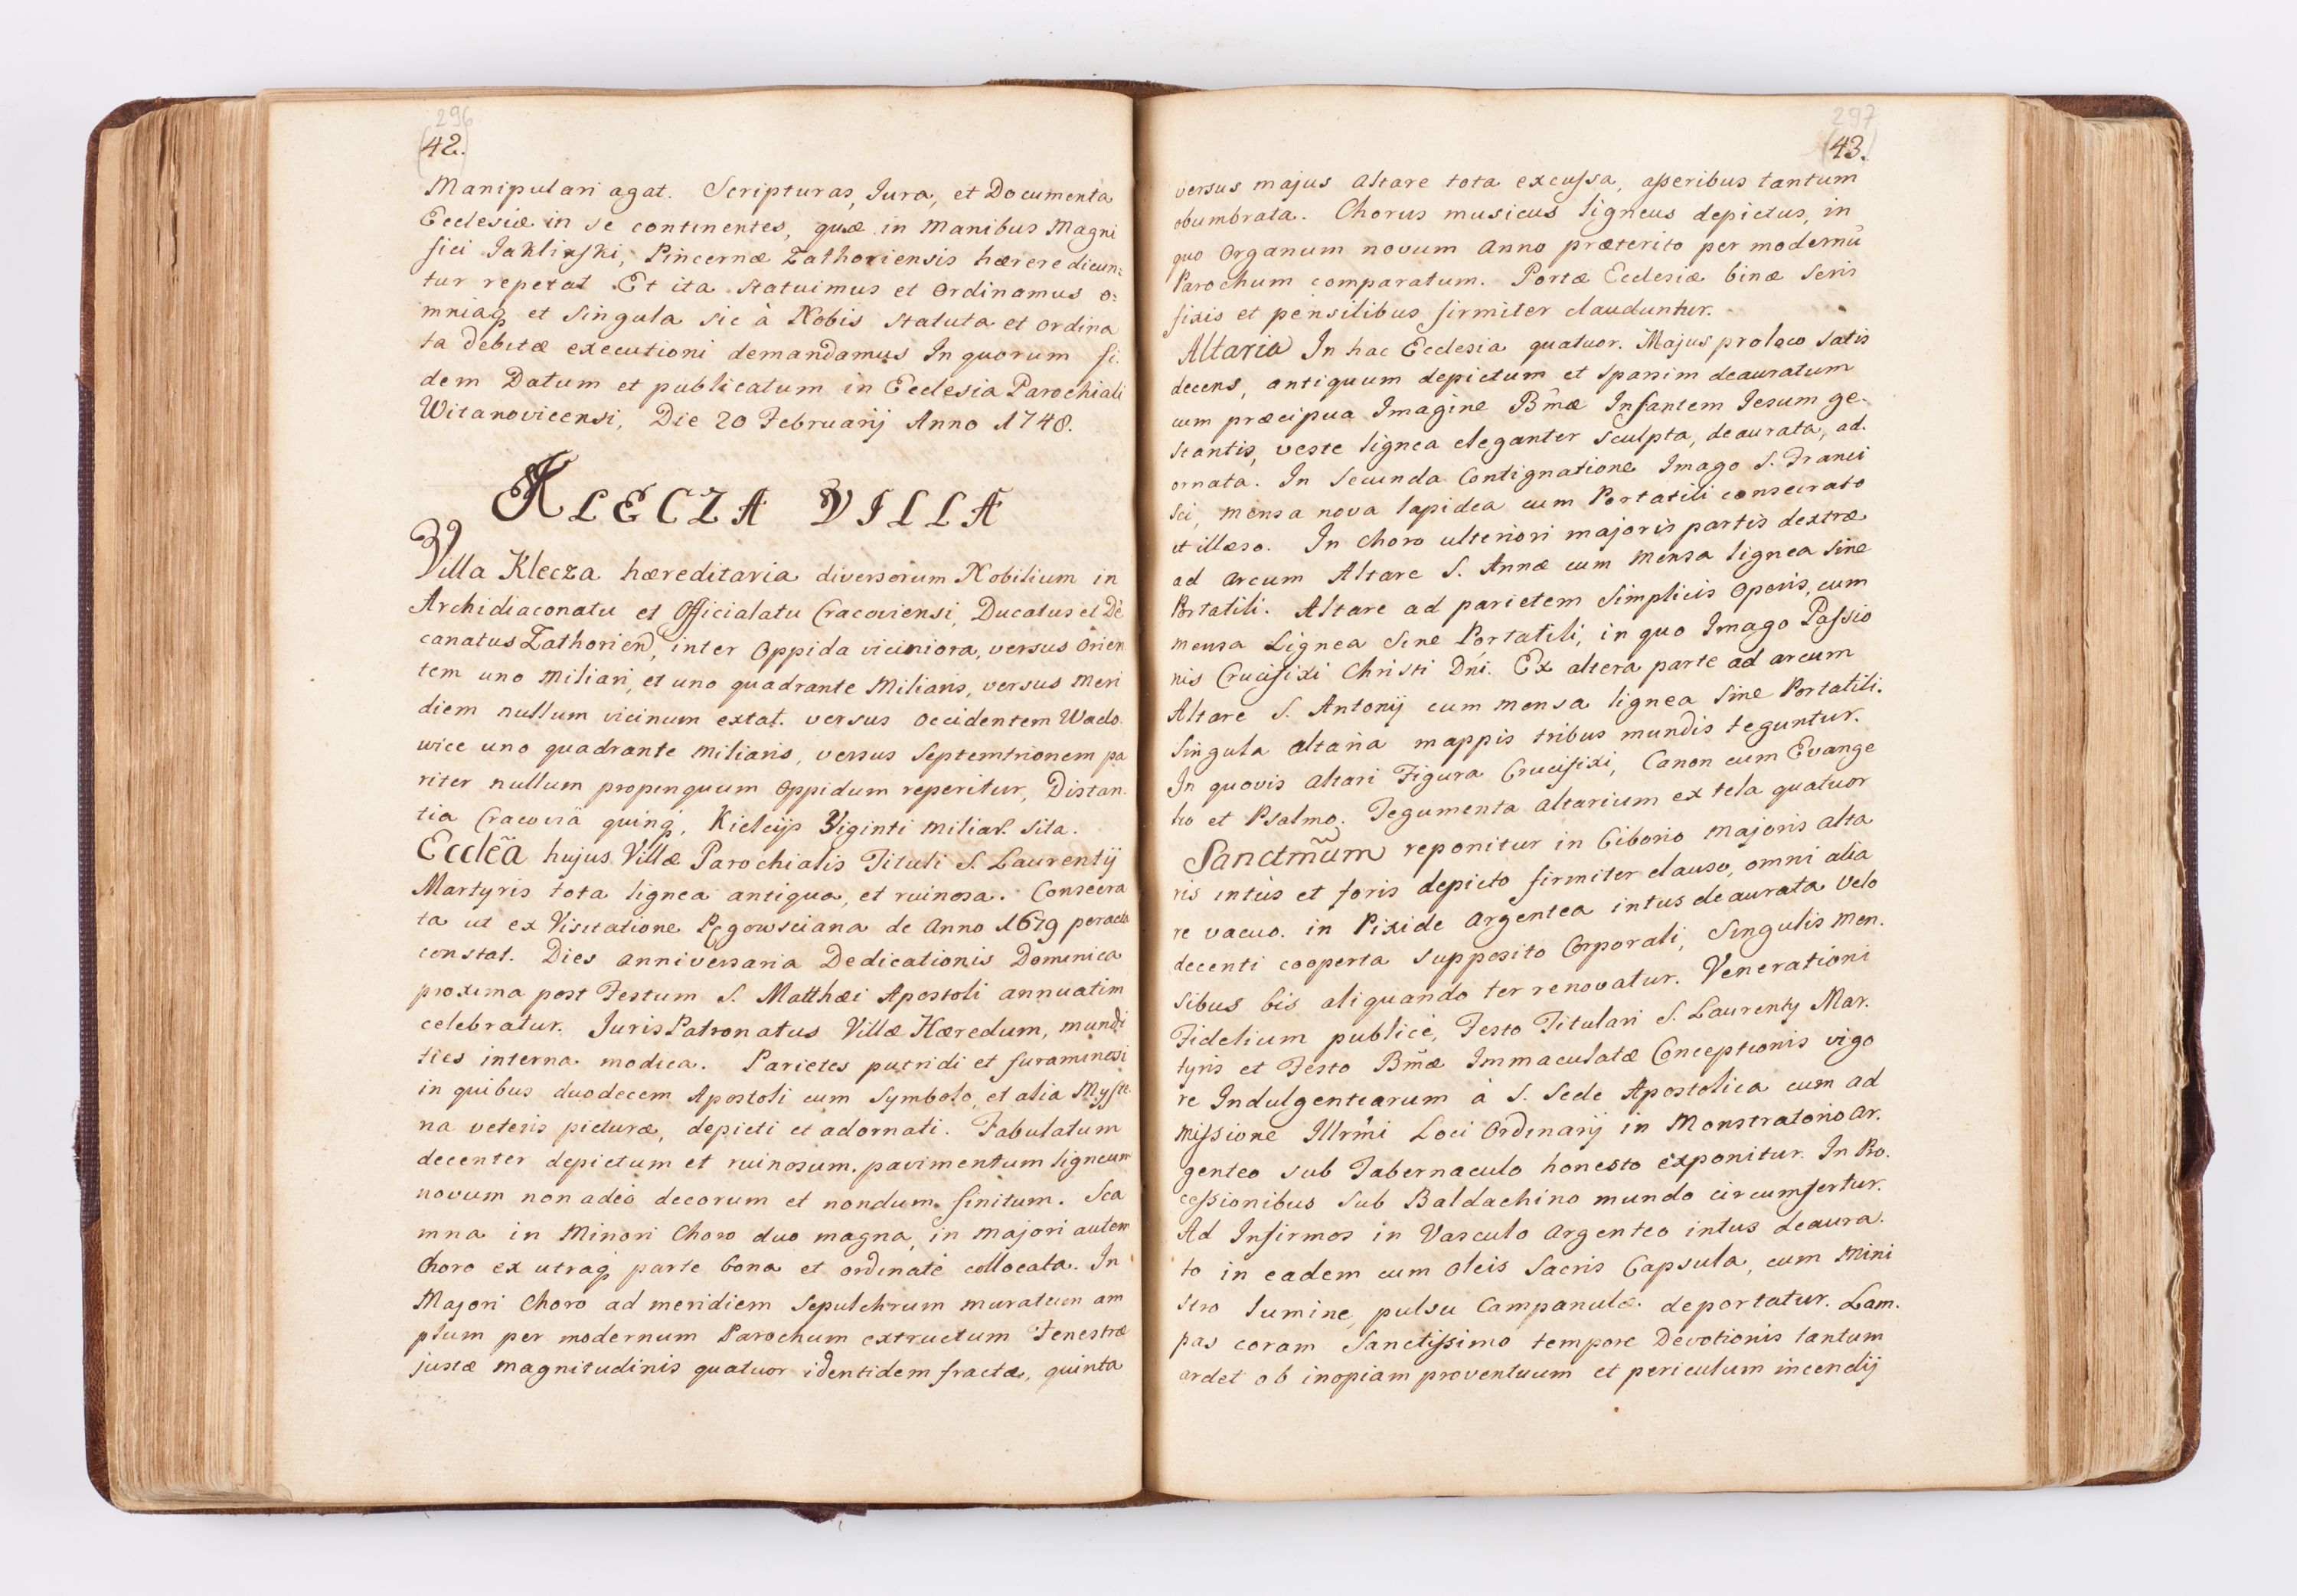 296
(42.)
Manipulari agat. Scripturas, Iura, et Documenta
Ecclesiæ in se continentes, quæ in Manibus Magni
fici Jakliński, Pincernæ Zathoriensis hærere dicun:
tur repetat Et ita statuimus et Ordinamus o:
mniaq̃ et Singula sic à Nobis statuta et ordina
ta debitæ executioni demandamus In quorum fi:
dem Datum et publicatum in Ecclesia Parochiali
Witanovicensi, Die 20 Februarij Anno 1748.
KLECZA VILLA
Villa Klecza hæreditaria diversorum Nobilium in
Archidiaconatu et Officialatu Cracoviensi, Ducatus et De
canatus Zathorien̄, inter Oppida viciniora, versus Orien
tem uno Miliari, et uno quadrante Miliaris, versus Meri
diem nullum vicinum extat. versus Occidentem Wado
wice uno quadrante miliaris, versus Septemtrionem pa
riter nullum propinquum Oppidum reperitur, Distan
tia Cracoviâ quinq̃, Kielcijs Viginti miliar. Sita.
Ecclẽa hujus Villæ Parochialis Tituli S. Laurentij
Martyris tota lignea antiqua, et ruinosa. Consecra
ta ut ex Visitatione Łęgowsciana de Anno 1679 peracta
constat. Dies anniversaria Dedicationis Dominica
proxima post Festum S. Matthæi Apostoli annuatim
celebratur. Juris Patronatus Villæ Hæredum, mundi
ties interna modica. Parietes putridi et furaminosi
in quibus duodecem Apostoli cum Symbolo, et alia Myste
ria veteris picturæ, depicti et adornati. Tabulatum
decenter depictum et ruinosum. pavimentum ligneum
novum non adeò decorum et nondum finitum. Sca
mna in Minori Choro duo magna, in Majori autem
Choro ex utraq̃ parte bona et ordinatè collocata. In
Majori Choro ad meridiem Sepulchrum muratum am
plum per modernum Parochum extructum Fenestræ
justæ magnitudinis quatuor identidem fractæ, quinta
297
(43.)
versus majus Altare tota excussa, asseribus tantum
obumbrata. Chorus musicus ligneus depictus, in
quo Organum novum Anno præterito per modernū
Parochum comparatum. Portæ Ecclesiæ binæ Seris
fixis et pensilibus firmiter clauduntur.
Altaria In hac Ecclesia quatuor. Majus pro loco satis
decens, antiquum depictum et Sparsim deauratum
cum præcipua Imagine Bm̃æ Infantem Iesum ge-
stantis, veste lignea eleganter sculpta, deaurata, ad-
ornata. In Secunda Contignatione Imago S. Franci
sci, mensa nova lapidea cum Portatili consecrato
et illæso. In Choro ulteriori majoris partis dextræ
ad Arcum Altare S. Annæ cum Mensa lignea Sine
Portatili. Altare ad parietem Simplicis Operis, cum
mensa Lignea Sine Portatili, in quo Imago Passio
nis Crucifixi Christi Dni. Ex altera parte ad arcum
Altare S. Antonij cum mensa lignea Sine Portatili.
Singula altaria mappis tribus mundis teguntur.
In quovis altari Figura Crucifixi, Canon cum Evange
lio et Psalmo. Tegumenta altarium ex tela quatuor
Sanctm̃um reponitur in Ciborio majoris alta
ris intùs et foris depicto firmiter clauso, omni alia
re vacuo. in Pixide Argentea intus deaurata Velo
decenti cooperta supposito Corporali, Singulis Men-
sibus bis aliquando ter renovatur. Venerationi
Fidelium publicè, Festo Titulari S. Laurentij Mar-
tyris et Festo Bm̃æ Immaculatæ Conceptionis vigo
re Indulgentiarum à S. Sede Apostolica cum ad
missione Illrm̃i Loci Ordinarij in Monstratorio Ar-
genteo sub Tabernaculo honesto exponitur. In Pro-
cessionibus Sub Baldachino mundo circumfertur.
Ad Infirmos in Vasculo Argenteo intus deaura-
to in eadem cum Oleis Sacris Capsula, cum Mini
stro lumine, pulsu Campanulæ deportatur. Lam-
pas coram Sanctissimo tempore Devotionis tantum
ardet ob inopiam proventuum et periculum incendij